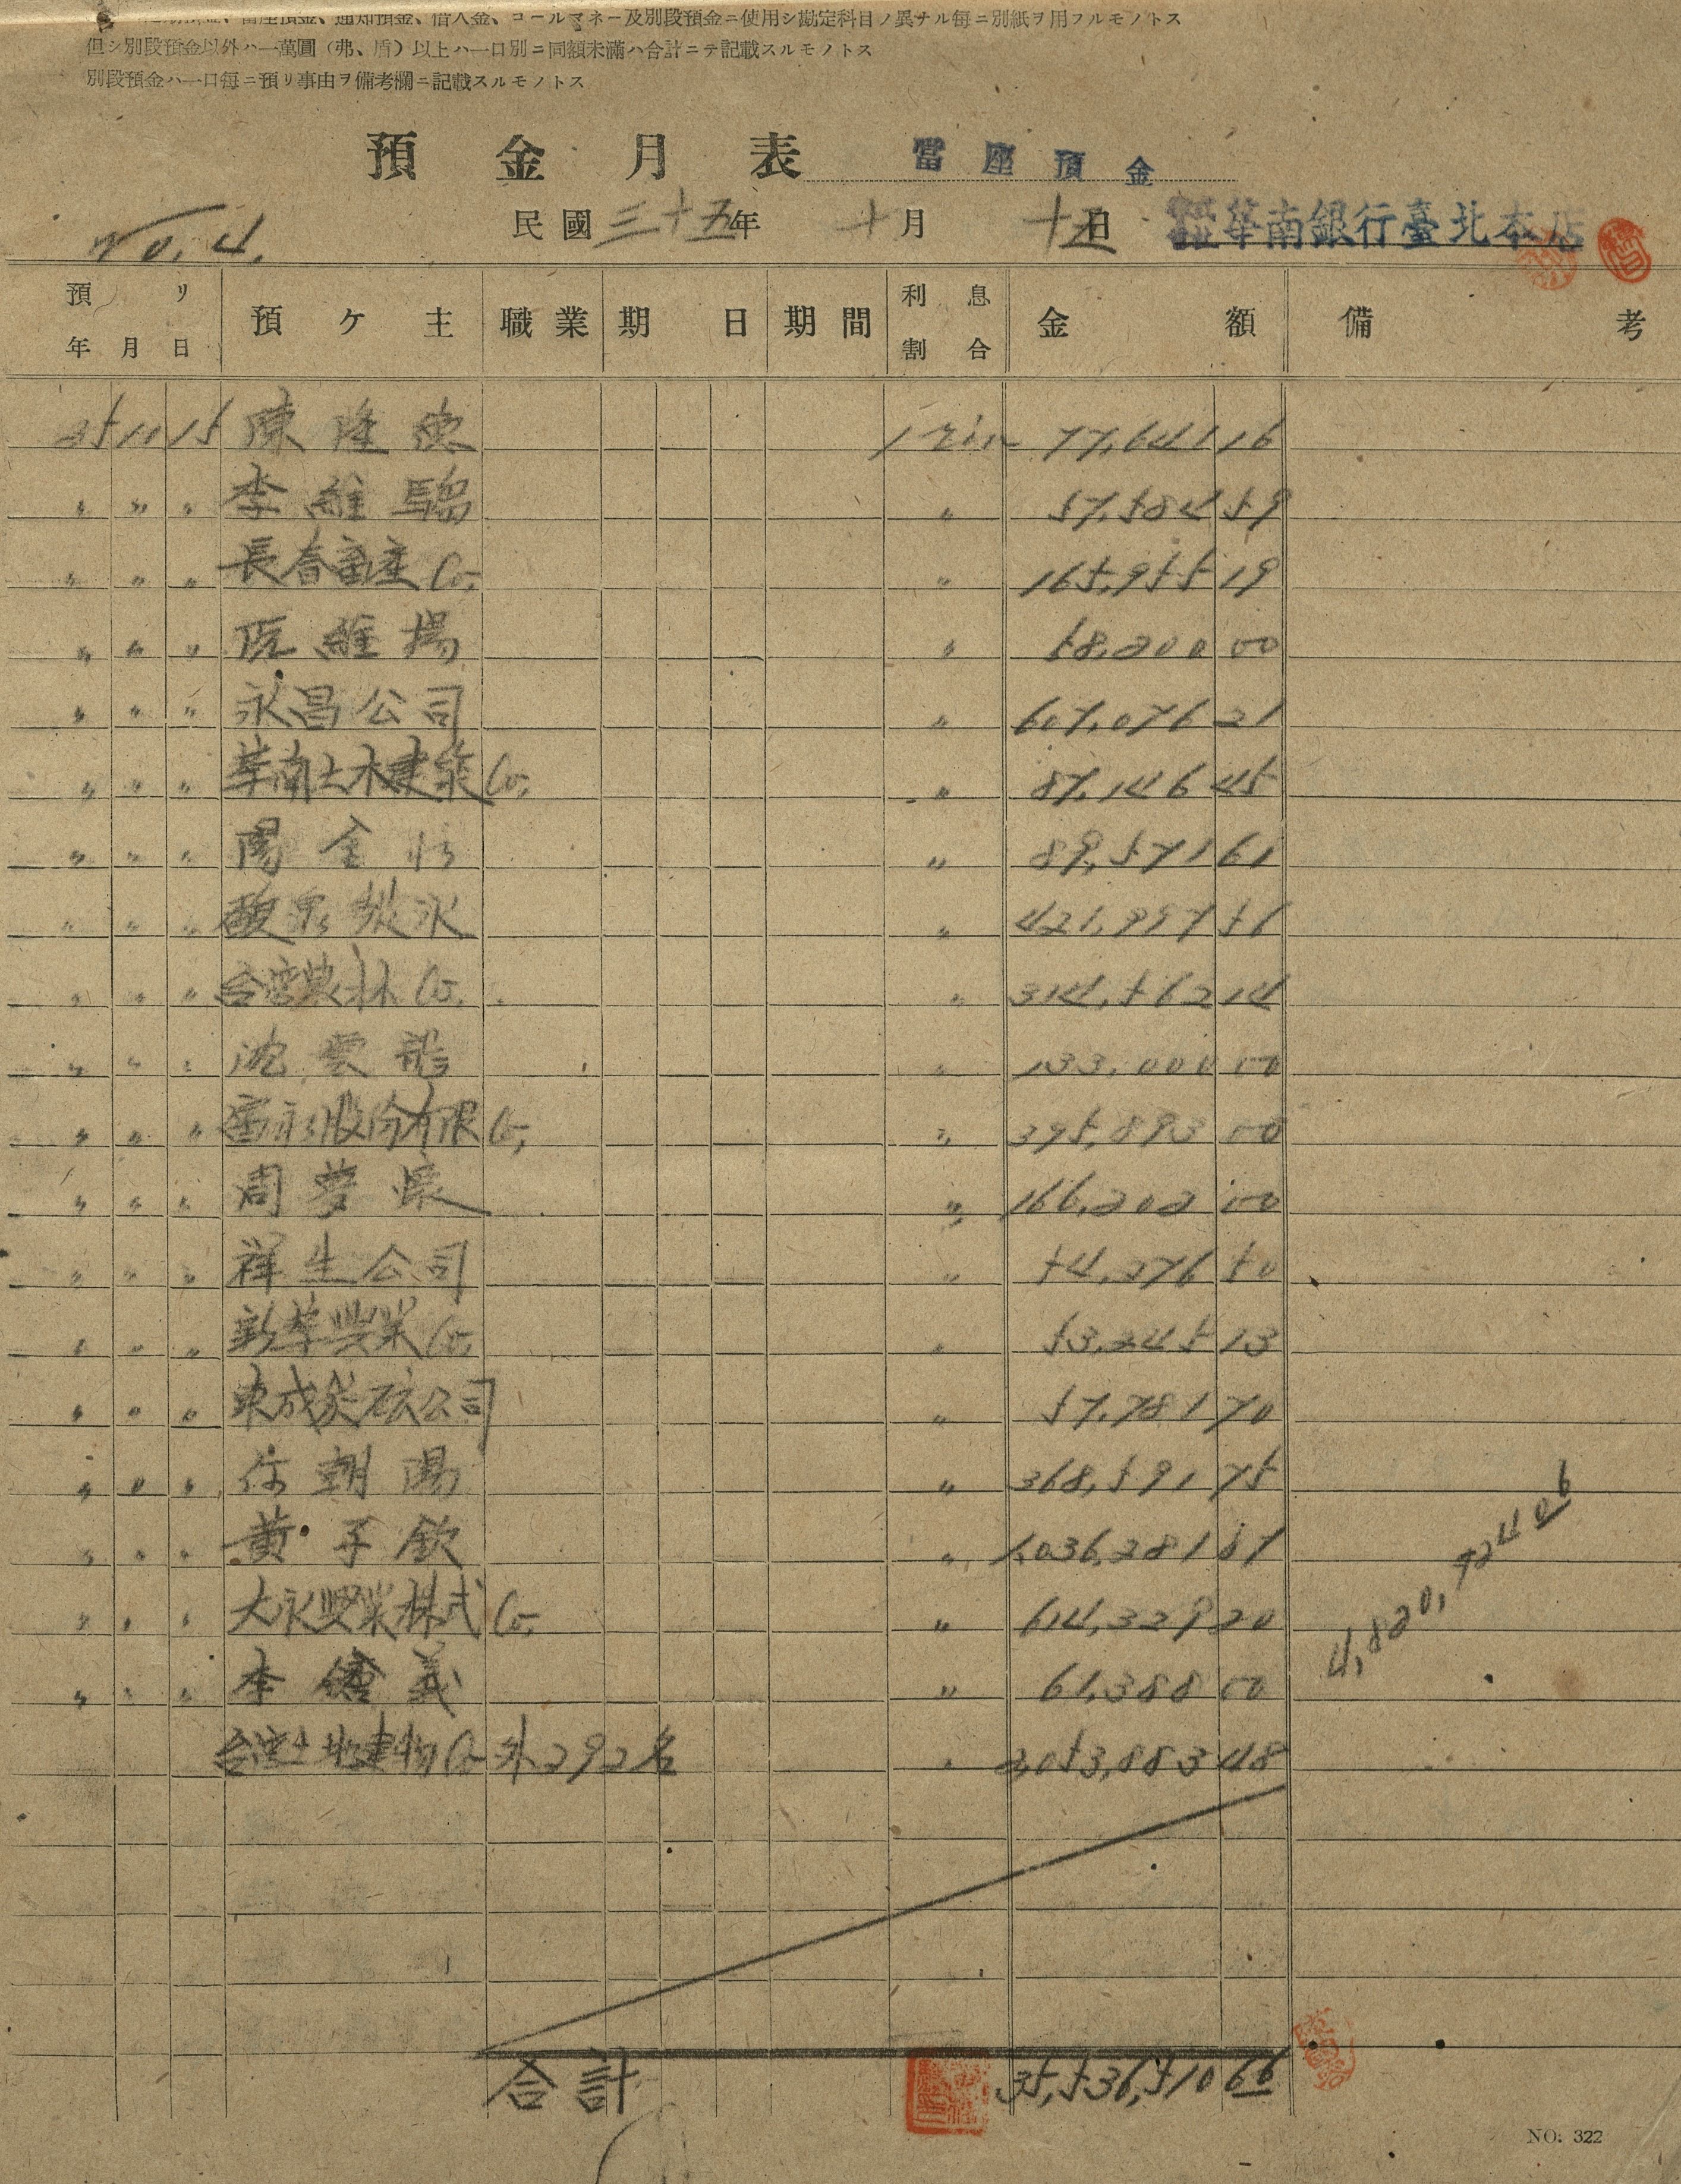 當座預金、通知預金、借入金、コールマネー及別段預金ニ使用シ勘定科目ノ異ナル每ニ別紙ヲ用フルモノトス
但シ別段預金以外ハ一萬圓（弗、盾）以上ハ一口別ニ同額未滿ハ合計ニテ記載スルモノトス
別段預金ハ一口每ニ預リ事由ヲ備考欄ニ記載スルモノトス
預金月表 當座預金
No. 4. 民國三十五年 十月 十五日 華南銀行臺北本店
預リ年月日 預ケ主 職業 期日 期間 利息割合 金額 備考
35 10 15 陳隆 1 rin 77,641 16
〃 〃 〃 李維 〃 57,584 59
〃 〃 〃 長春畜產 Co, 〃 165,955 19
〃 〃 〃 阮維揚 〃 58,200 00
〃 〃 〃 永昌公司 〃 607,076 21
〃 〃 〃 華南土木建築 Co, 〃 87,146 45
〃 〃 〃 金 〃 89,571 61
〃 〃 〃 〃 421,997 56
〃 〃 〃 台湾農林 Co. 〃 314,562 14
〃 〃 〃 沈雲龍 〃 133,000 00
〃 〃 〃 股份有限 Co, 〃 395,893 00
〃 〃 〃 周夢 〃 166,202 00
〃 〃 〃 祥生公司 〃 54,276 50
〃 〃 〃 新華興業 Co, 〃 53,245 13
〃 〃 〃 東成炭砿公司 〃 57,781 70
〃 〃 〃 朝陽 〃 368,591 75
〃 〃 〃 黃子欽 〃 1,036,281 87
〃 〃 〃 大永興業株式 Co, 〃 614,329 20
〃 〃 〃 李 義 〃 61,388 00
台湾土地建物 Co 外292名 〃 2,053,883 48
4,820,724 06
合計 35,536,510 66
NO. 322